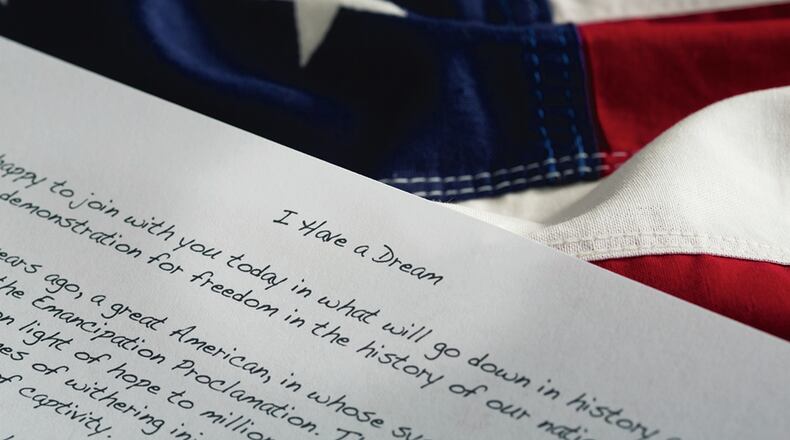 I Have a Dream
happy to join with you today in what will go down in history
demonstration for freedom in the history of our nati
ears ago, a great American, in whose sy
the Emancipation Proclamation. T
on light of hope to million
es of withering in
of captivity.